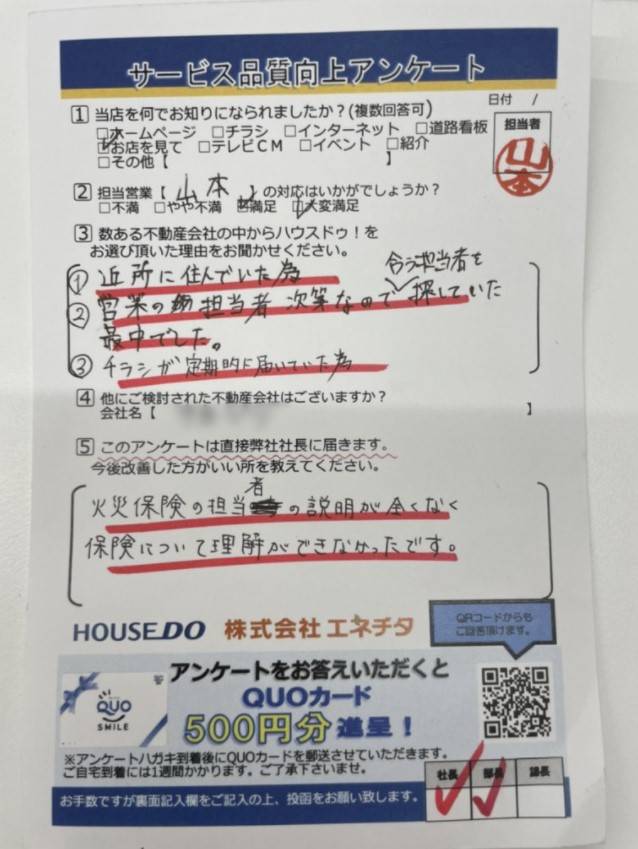 サービス品質向上アンケート
日付 /
担当者
山本
1 当店を何でお知りになられましたか?(複数回答可)
□ホームページ □チラシ □インターネット □道路看板
☑お店を見て □テレビCM □イベント □紹介
□その他【 】
2 担当営業【 山本 】の対応はいかがでしょうか?
□不満 □やや不満 □満足 ☑大変満足
3 数ある不動産会社の中からハウスドゥ!を
お選び頂いた理由をお聞かせください。
① 近所に住んでいた為
合う担当者を
② 営業の 担当者 次第なので 探していた
最中でした。
③ チラシが定期的に届いていた為
4 他にご検討された不動産会社はございますか?
会社名【 】
5 このアンケートは直接弊社社長に届きます。
今後改善した方がいい所を教えてください。
者
火災保険の担当 の説明が全くなく
保険について理解ができなかったです。
HOUSEDO 株式会社 エネチタ
QRコードからも
ご回答頂けます。
アンケートをお答えいただくと
QUOカード
500円分 進呈!
QUO
SMILE
※アンケートハガキ到着後にQUOカードを郵送させていただきます。
ご自宅到着には1週間かかります。ご了承下さいませ。
社長 部長 課長
お手数ですが裏面記入欄をご記入の上、投函をお願い致します。